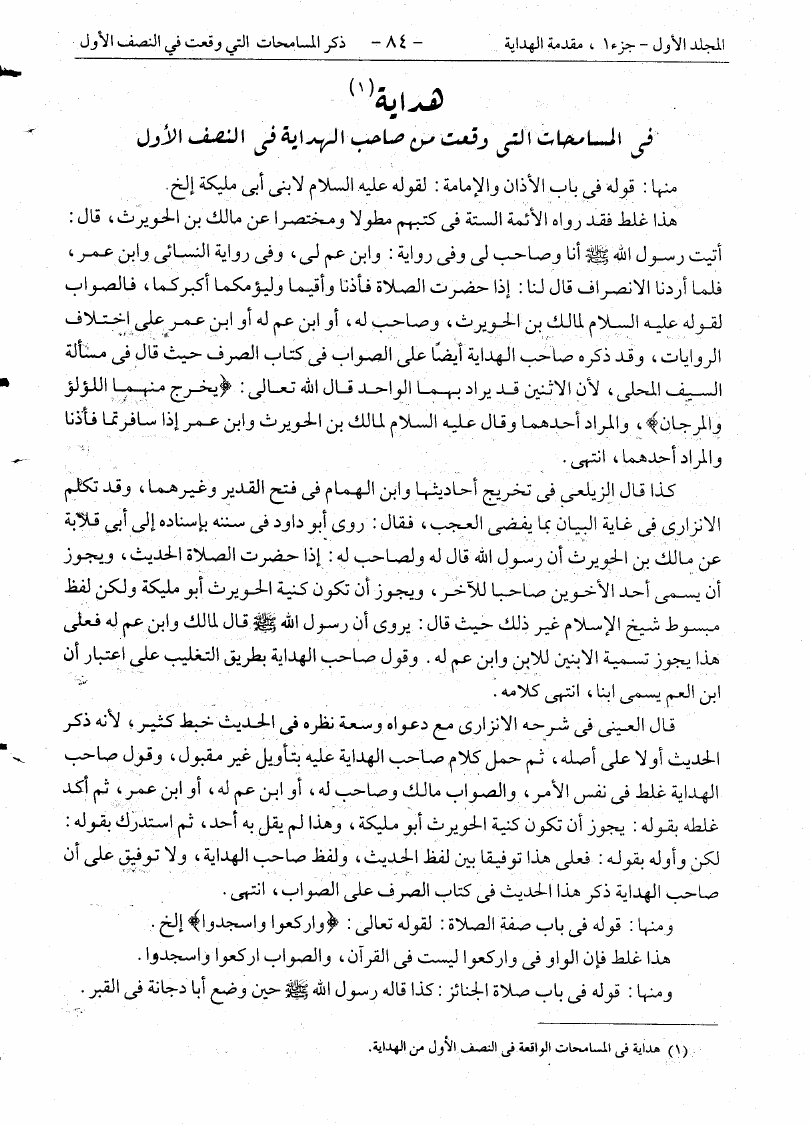 المجلد الأول - جزء ١ ، مقدمة الهداية - ٨٤ - ذكر المسامحات التي وقعت في النصف الأول
هداية (١)
فى المسامحات التى وقعت من صاحب الهداية فى النصف الأول
منها: قوله فى باب الأذان والإمامة: لقوله عليه السلام لابنى أبى مليكة إلخ.
هذا غلط فقد رواه الأئمة الستة فى كتبهم مطولا ومختصرا عن مالك بن الحويرث، قال:
أتيت رسول الله ﷺ أنا وصاحب لى وفى رواية: وابن عم لى، وفى رواية النسائى وابن عمر،
فلما أردنا الانصراف قال لنا: إذا حضرت الصلاة فأذنا وأقيما وليؤمكما أكبركما، فالصواب
لقوله عليه السلام لمالك بن الحويرث، وصاحب له، أو ابن عم له أو ابن عمر على اختلاف
الروايات، وقد ذكره صاحب الهداية أيضًا على الصواب فى كتاب الصرف حيث قال فى مسألة
السيف المحلى، لأن الاثنين قد يراد بهما الواحد قال الله تعالى: ﴿يخرج منهما اللؤلؤ
والمرجان﴾، والمراد أحدهما وقال عليه السلام لمالك بن الحويرث وابن عمر إذا سافرتما فأذنا
والمراد أحدهما، انتهى.
كذا قال الزيلعى فى تخريج أحاديثها وابن الهمام فى فتح القدير وغيرهما، وقد تكلم
الانزارى فى غاية البيان بما يفضى العجب، فقال: روى أبو داود فى سننه بإسناده إلى أبى قلابة
عن مالك بن الحويرث أن رسول الله قال له ولصاحب له: إذا حضرت الصلاة الحديث، ويجوز
أن يسمى أحد الأخوين صاحبا للآخر، ويجوز أن تكون كنية الحويرث أبو مليكة ولكن لفظ
مبسوط شيخ الإسلام غير ذلك حيث قال: يروى أن رسول الله ﷺ قال لمالك وابن عم له فعلى
هذا يجوز تسمية الابنين للابن وابن عم له. وقول صاحب الهداية بطريق التغليب على اعتبار أن
ابن العم يسمى ابنا، انتهى كلامه.
قال العينى فى شرحه الانزارى مع دعواه وسعة نظره فى الحديث خبط كثير، لأنه ذكر
الحديث أولا على أصله، ثم حمل كلام صاحب الهداية عليه بتأويل غير مقبول، وقول صاحب
الهداية غلط فى نفس الأمر، والصواب مالك وصاحب له، أو ابن عم له، أو ابن عمر، ثم أكد
غلطه بقوله: يجوز أن تكون كنية الحويرث أبو مليكة، وهذا لم يقل به أحد، ثم استدرك بقوله:
لكن وأوله بقوله: فعلى هذا توفيقا بين لفظ الحديث، ولفظ صاحب الهداية، ولا توفيق على أن
صاحب الهداية ذكر هذا الحديث فى كتاب الصرف على الصواب، انتهى.
ومنها: قوله فى باب صفة الصلاة: لقوله تعالى: ﴿واركعوا واسجدوا﴾ إلخ.
هذا غلط فإن الواو فى واركعوا ليست فى القرآن، والصواب اركعوا واسجدوا.
ومنها: قوله فى باب صلاة الجنائز: كذا قاله رسول الله ﷺ حين وضع أبا دجانة فى القبر.
(١) هداية فى المسامحات الواقعة فى النصف الأول من الهداية.